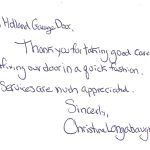 Holland Garage Door,
Thank you for taking good care
fixing our door in a quick fashion.
Services are much appreciated.
Sincerely,
Christine Longabaugh